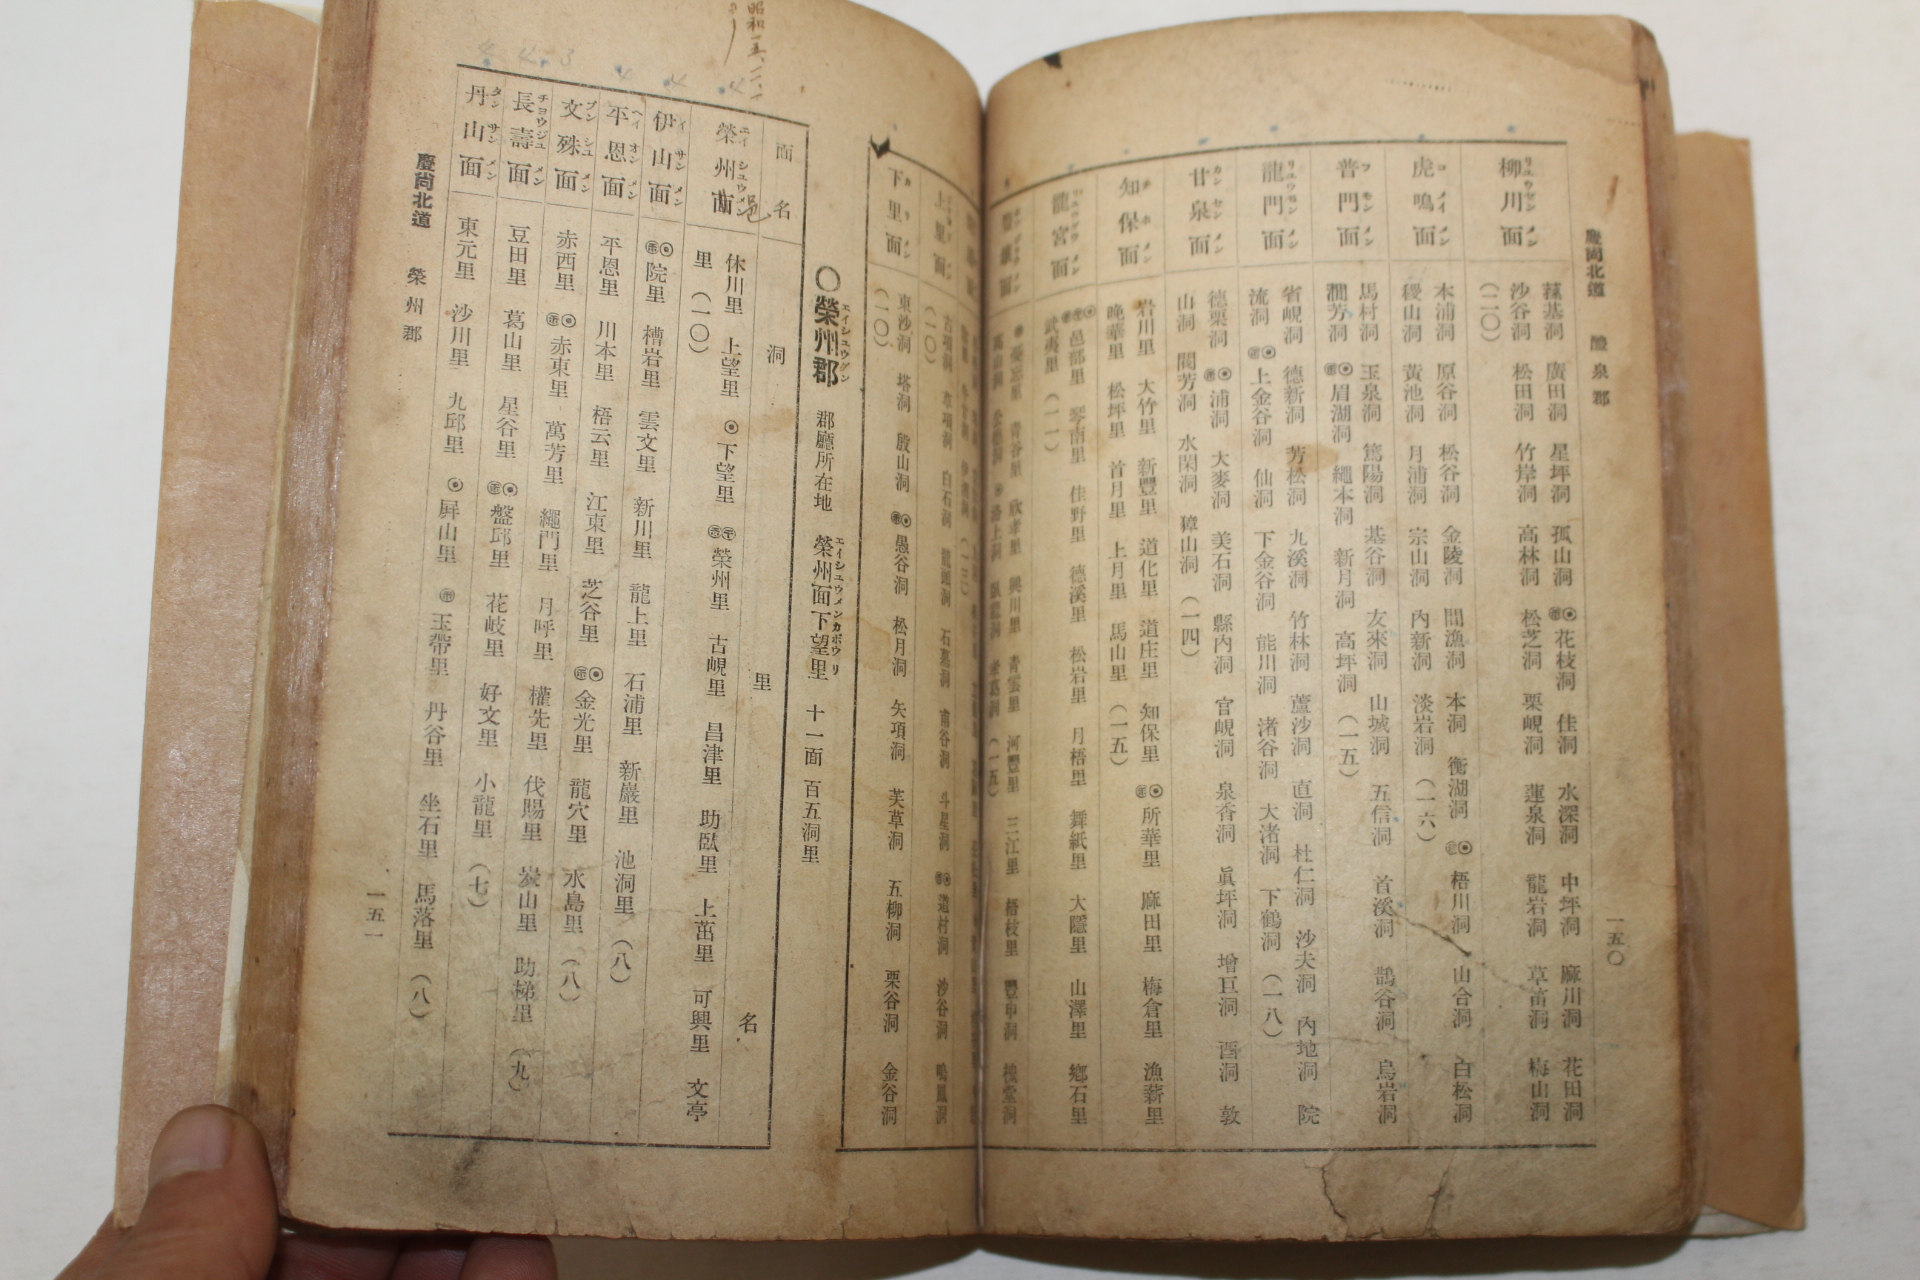 慶尙北道 醴泉郡
一五〇
柳川面 リユウセンメン
菰基洞 廣田洞 星坪洞 孤山洞 花枝洞 佳洞 水深洞 中坪洞 麻川洞 花田洞
沙谷洞 松田洞 竹岸洞 高林洞 松芝洞 栗峴洞 蓮泉洞 龍岩洞 草苗洞 梅山洞
(二〇)
虎鳴面 コメイメン
本浦洞 原谷洞 松谷洞 金陵洞 閒漁洞 本洞 衡湖洞 梧川洞 山合洞 白松洞
稷山洞 黃池洞 月浦洞 宗山洞 內新洞 淡岩洞 (一六)
普門面 フモンメン
馬村洞 玉泉洞 篤陽洞 基谷洞 友來洞 山城洞 五信洞 首溪洞 鵲谷洞 烏岩洞
潤芳洞 眉湖洞 繩本洞 新月洞 高坪洞 (一五)
龍門面 リユウモンメン
省峴洞 德新洞 芳松洞 九溪洞 竹林洞 蘆沙洞 直洞 杜仁洞 沙夫洞 內地洞 院
流洞 上金谷洞 仙洞 下金谷洞 能川洞 渚谷洞 大渚洞 下鶴洞 (一八)
甘泉面 カンセンメン
德栗洞 浦洞 大麥洞 美石洞 縣內洞 官峴洞 泉香洞 眞坪洞 增巨洞 酉洞 敦
山洞 閥芳洞 水閑洞 獐山洞 (一四)
知保面 チホメン
岩川里 大竹里 新豐里 道化里 道庄里 知保里 所華里 麻田里 梅倉里 漁薪里
晚華里 松坪里 首月里 上月里 馬山里 (一五)
龍宮面
邑部里 琴南里 佳野里 德溪里 松岩里 月梧里 舞紙里 大隱里 山澤里 鄕石里
武夷里 (一一)
靑谷里 欣孝里 興川里 靑雲里 河豐里 三江里 梧枝里
(一五)
(一三)
上里面
古項洞 草項洞 白石洞 龍頭洞 石墓洞 南谷洞 斗星洞 道村洞 沙谷洞 鳴鳳洞
(一〇)
下里面 カリメン
東沙洞 塔洞 殷山洞 愚谷洞 松月洞 矢項洞 芙草洞 五柳洞 栗谷洞 金谷洞
(一〇)
〇榮州郡 エイシュウグン 郡廳所在地 榮州面下望里 エイシュウメンカボウリ 十一面 百五洞里
面名 洞里名
昭和一五、一一、一
榮州面 エイシュウメン 邑
休川里 上望里 下望里 榮州里 古峴里 昌津里 助臥里 上茁里 可興里 文亭
里 (一〇)
伊山面 イサンメン
院里 槽岩里 雲文里 新川里 龍上里 石浦里 新巖里 池洞里 (八)
平恩面 ヘイオンメン
平恩里 川本里 梧云里 江東里 芝谷里 金光里 龍穴里 水島里 (八)
文殊面 ブンシユメン
赤西里 赤東里 萬芳里 繩門里 月呼里 權先里 伐賜里 炭山里 助梯里 (九)
長壽面 チョウジユメン
豆田里 葛山里 星谷里 盤邱里 花岐里 好文里 小龍里 (七)
丹山面 タンサンメン
東元里 沙川里 九邱里 屛山里 玉帶里 丹谷里 坐石里 馬落里 (八)
慶尙北道 榮州郡
一五一